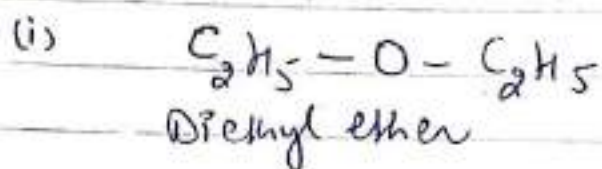 (i) C₂H₅ – O – C₂H₅
Diethyl ether